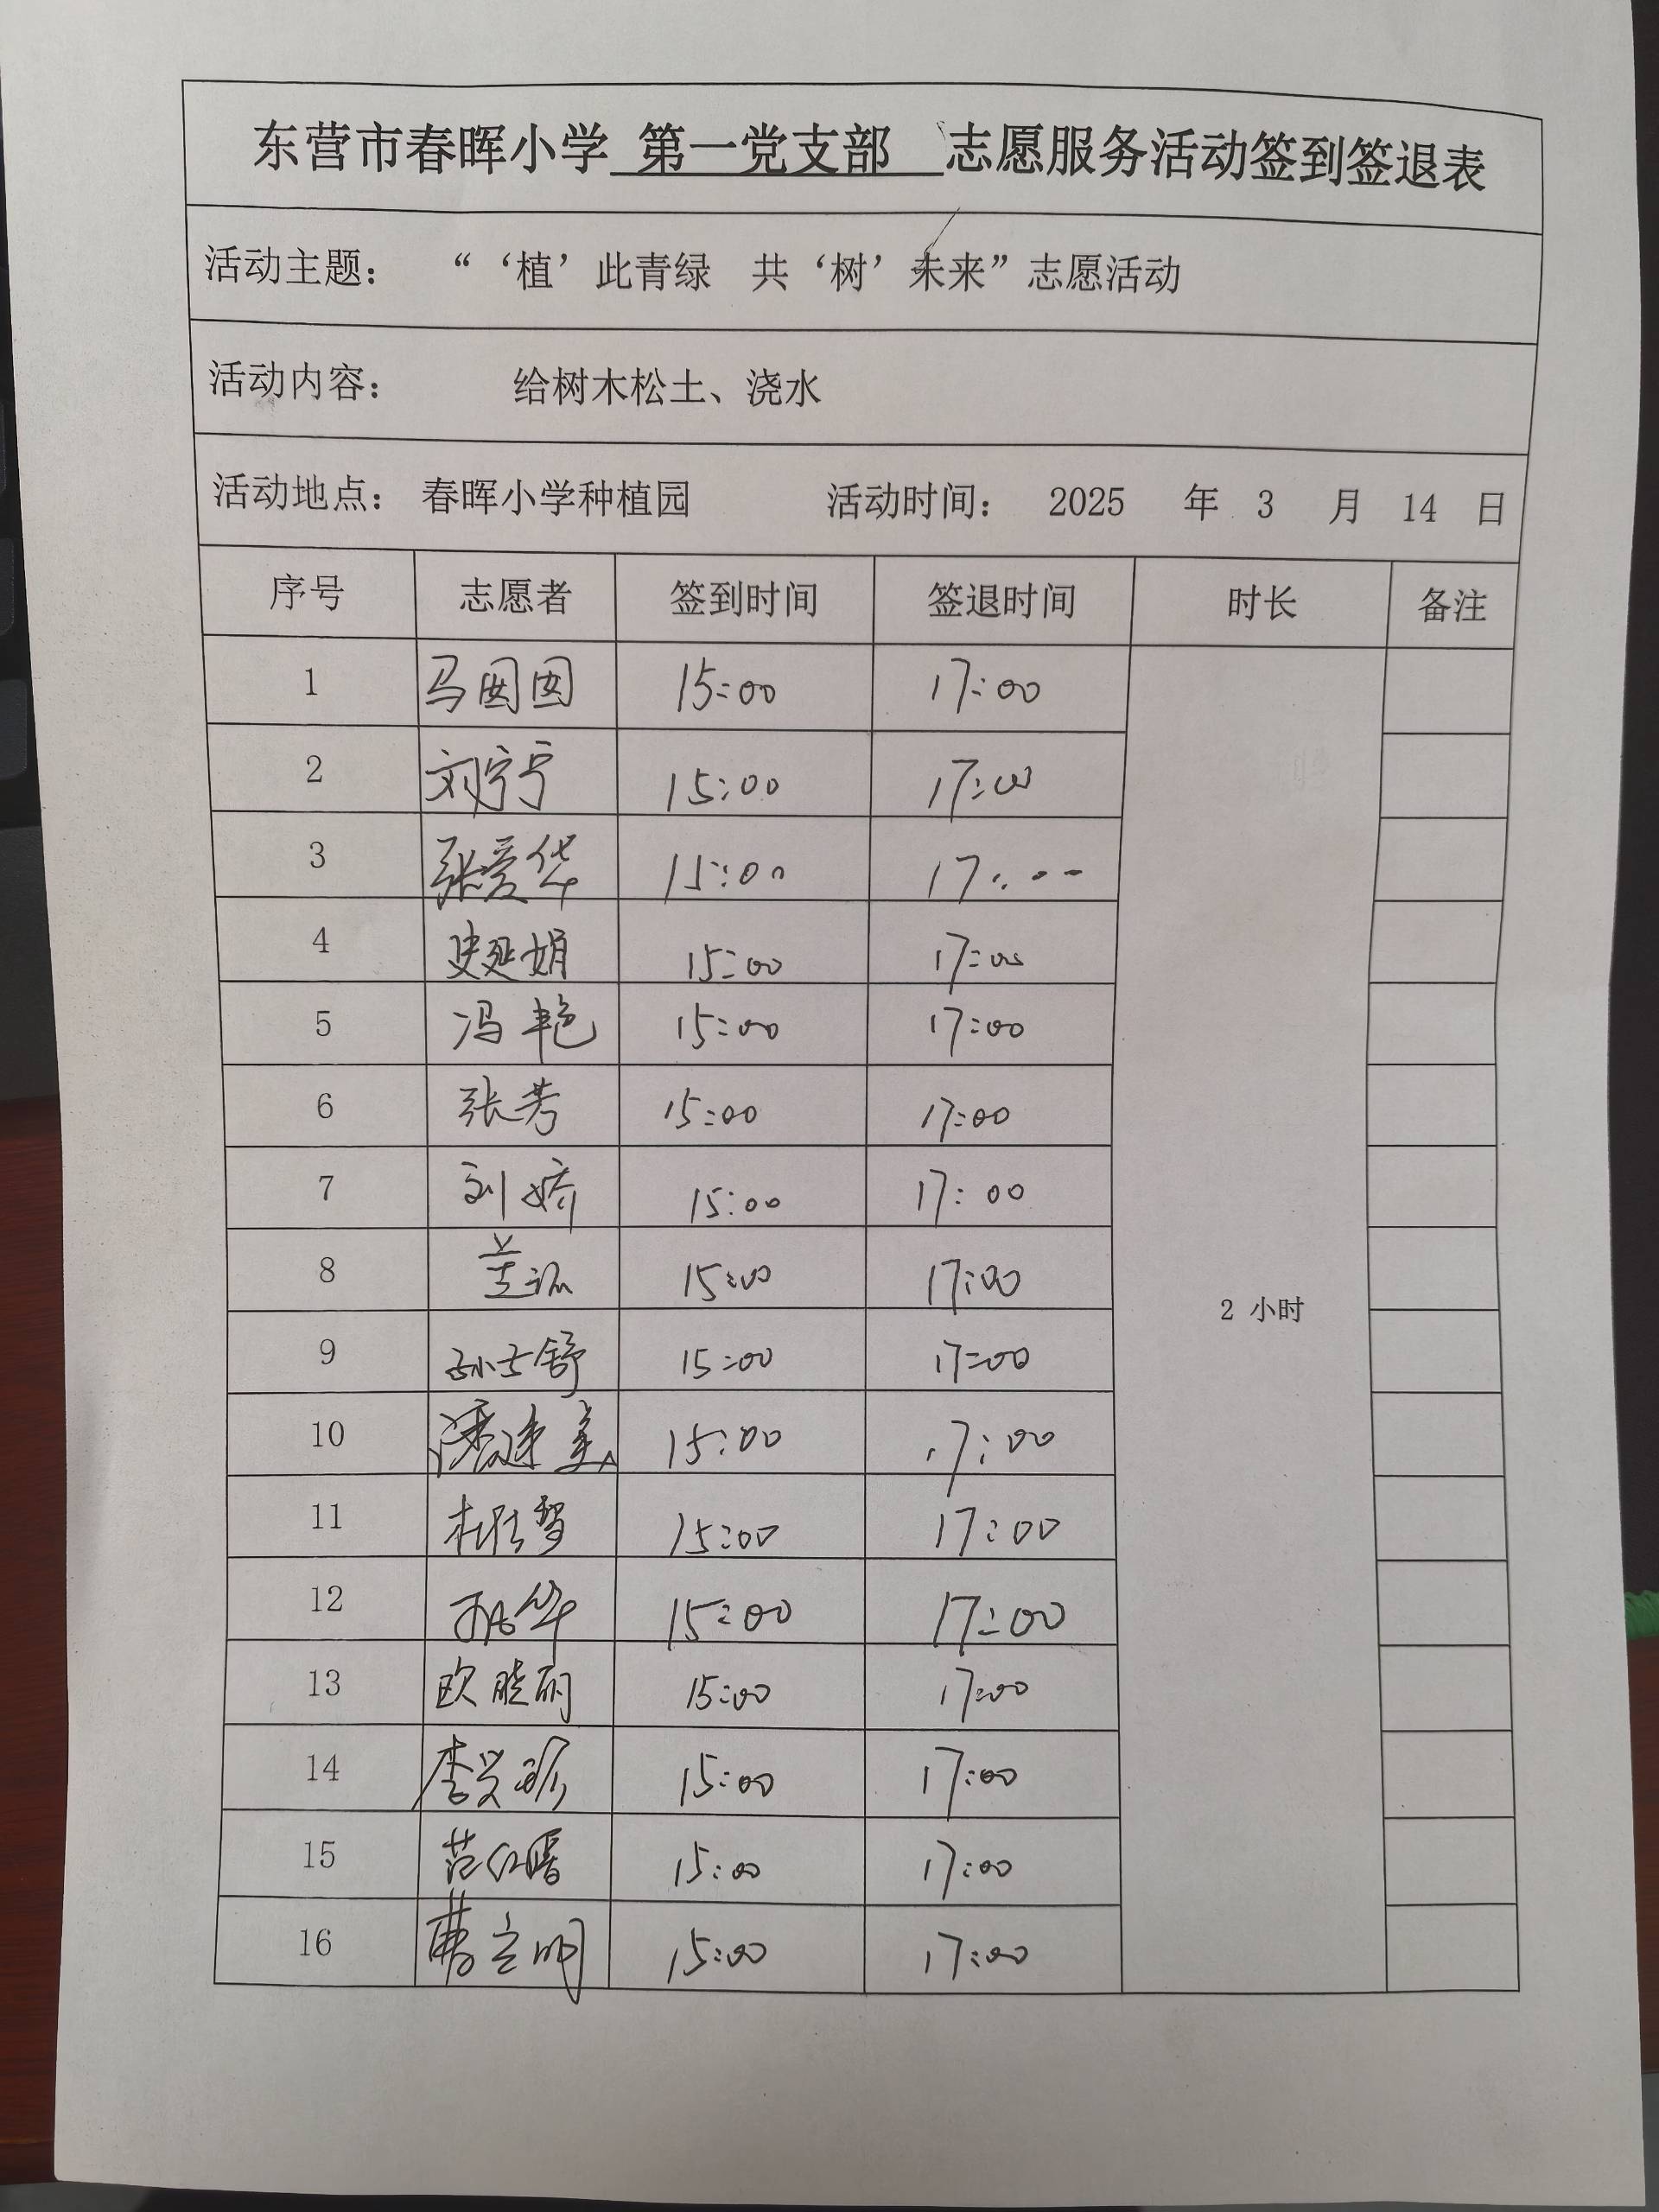 东营市春晖小学 第一党支部 志愿服务活动签到签退表
活动主题： “‘植’此青绿 共‘树’未来”志愿活动
活动内容： 给树木松土、浇水
活动地点： 春晖小学种植园 活动时间： 2025 年 3 月 14 日
序号 志愿者 签到时间 签退时间 时长 备注
1 马囡囡 15:00 17:00
2 刘宁宁 15:00 17:00
3 张爱华 15:00 17:00
4 史延娟 15:00 17:00
5 冯艳 15:00 17:00
6 张芳 15:00 17:00
7 刘娇 15:00 17:00
8 15:00 17:00
2 小时
9 孙士舒 15:00 17:00
10 15:00 17:00
11 15:00 17:00
12 15:00 17:00
13 欧晓丽 15:00 17:00
14 李 15:00 17:00
15 范红曙 15:00 17:00
16 曹立明 15:00 17:00